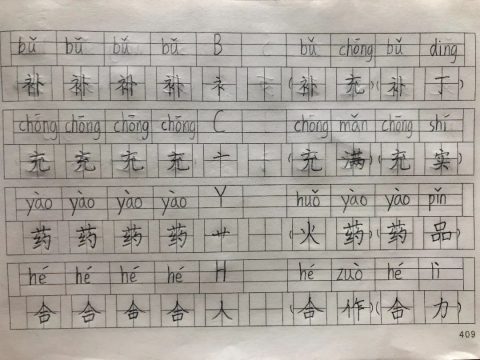 bǔ bǔ bǔ bǔ B bǔ chōng bǔ dīng
补 补 补 补 衤 (补 充)(补 丁
chōng chōng chōng chōng C chōng mǎn chōng shí
充 充 充 充 亠 (充 满)(充 实
yào yào yào yào Y huǒ yào yào pǐn
药 药 药 药 艹 (火 药)(药 品
hé hé hé hé H hé zuò hé lì
合 合 合 合 人 (合 作)(合 力
409